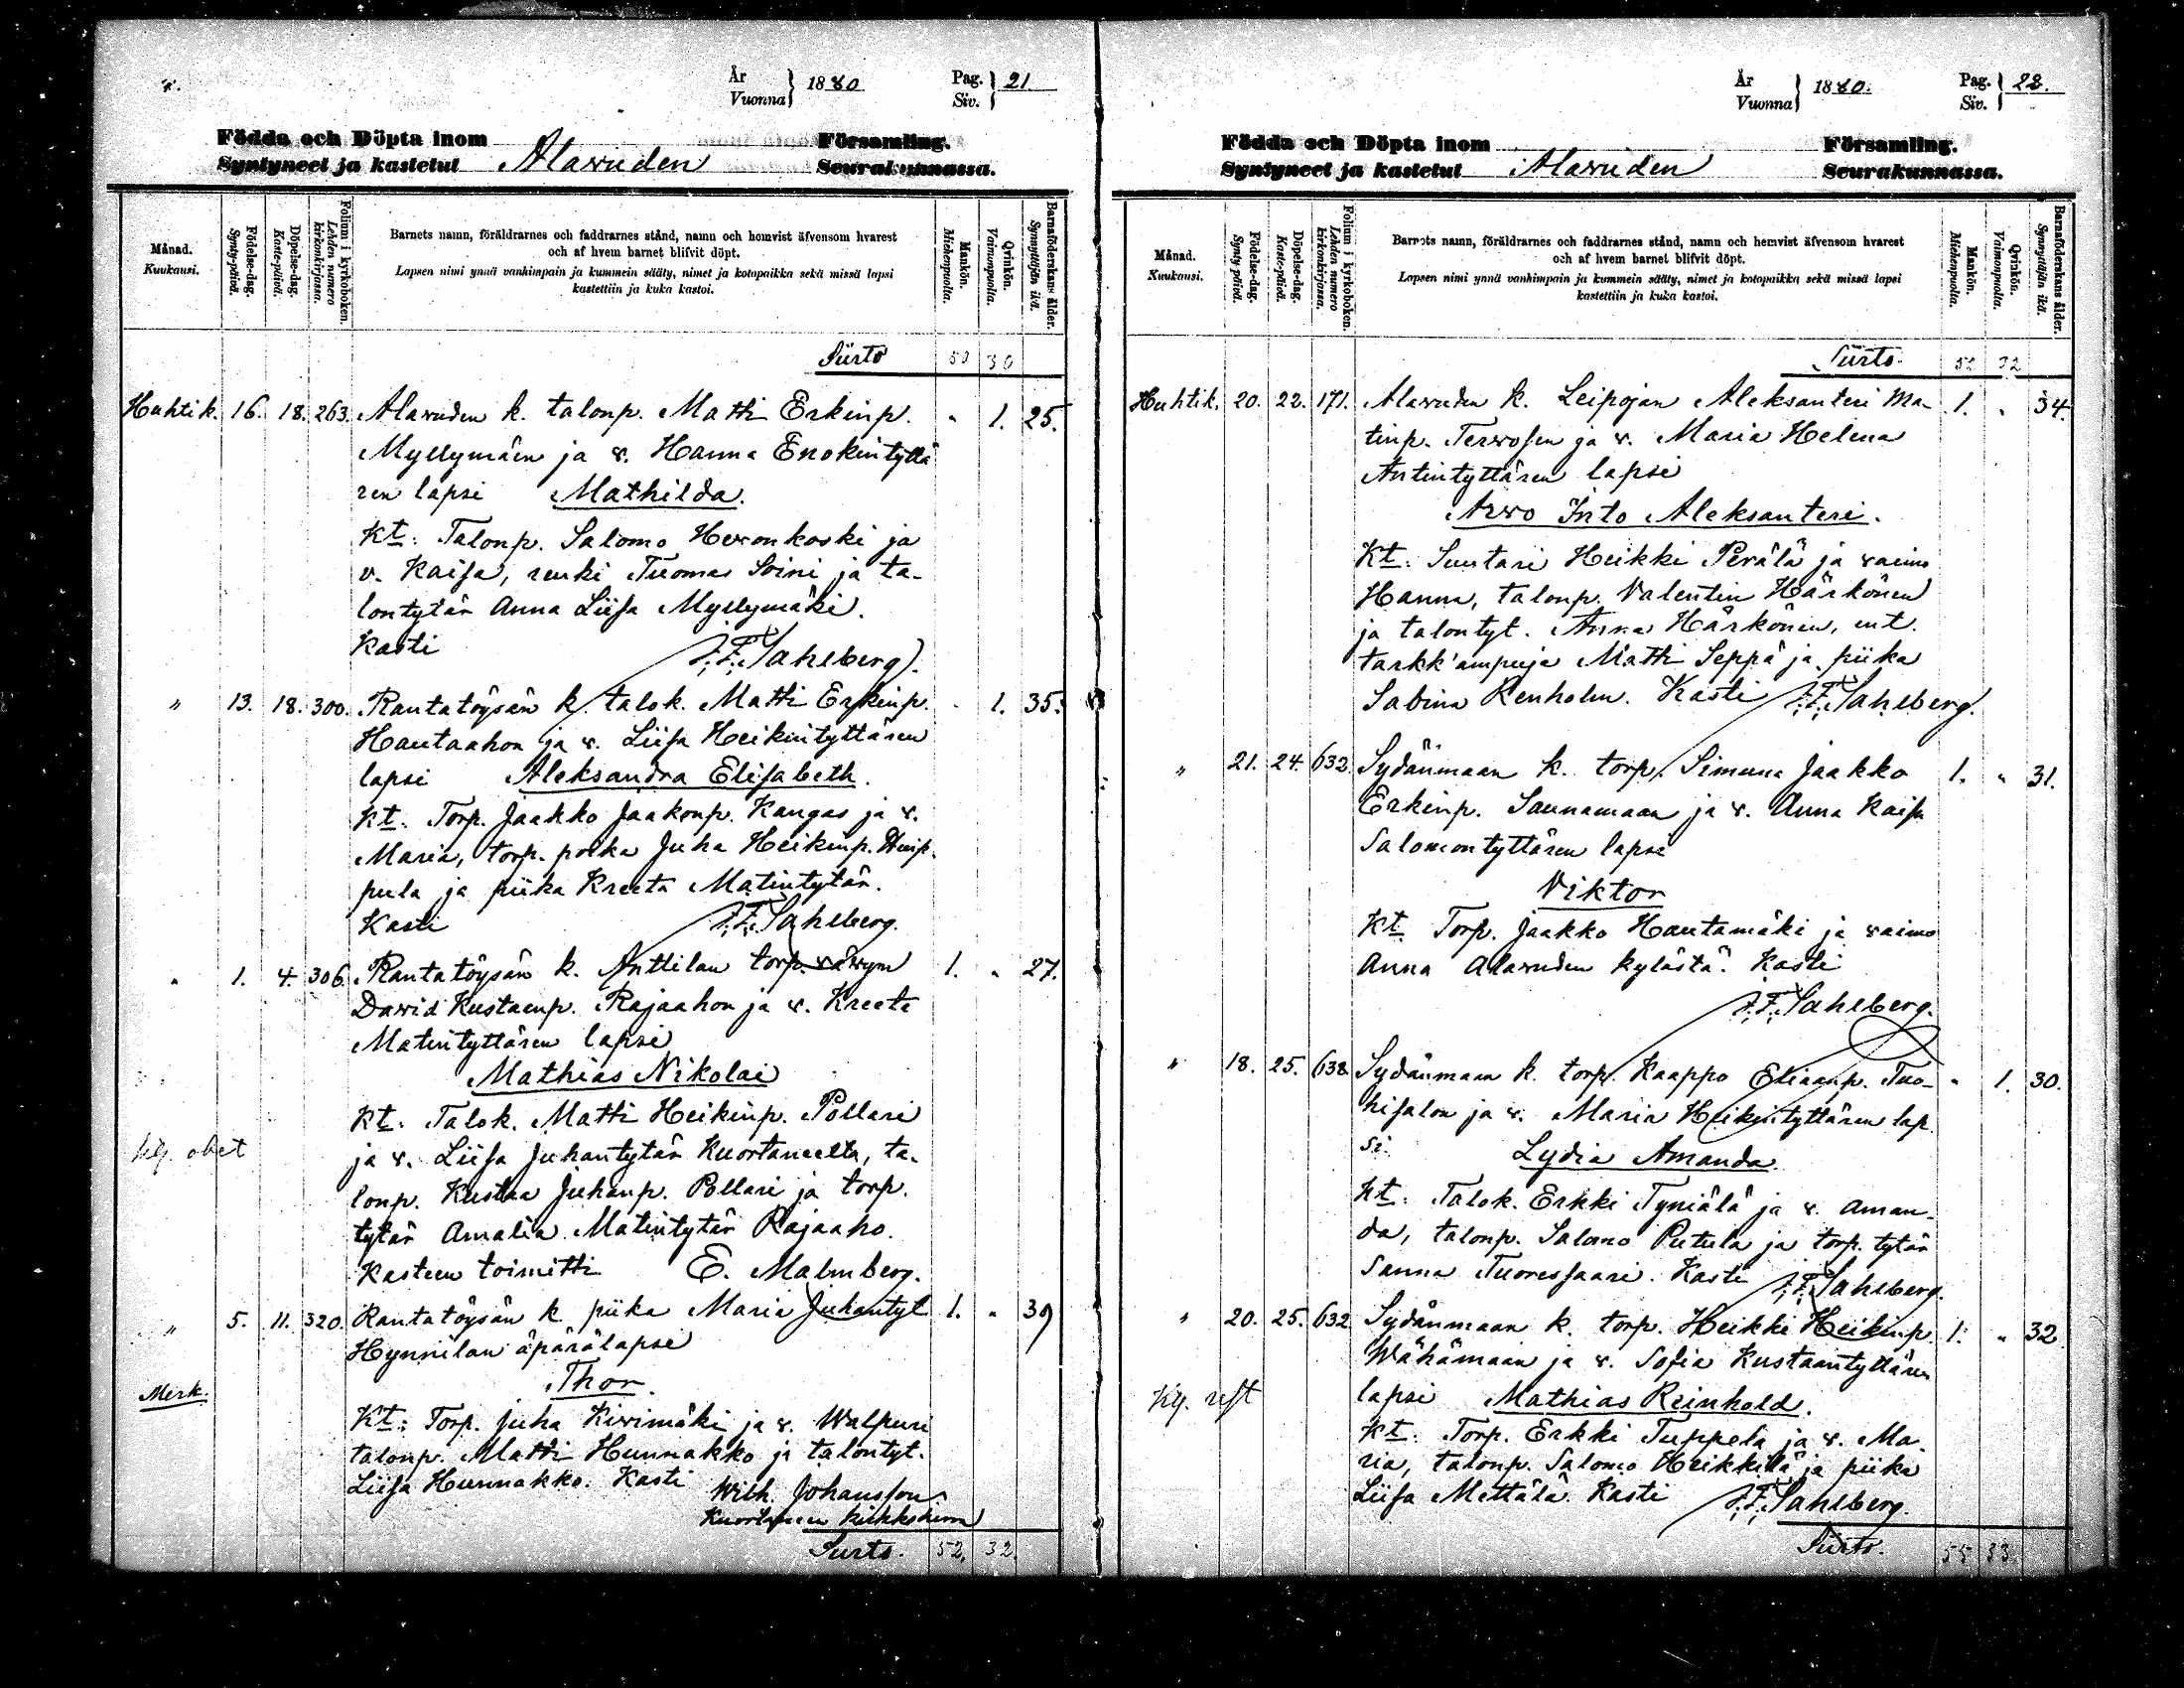 År
Vuonna
1880
Pag.
Siv.
21.
Födda och Döpta inom Församling.
Syntyneet ja kastetut Alawuden Seurakunnassa.
Månad.
Kuukausi.
Födelse-dag.
Synty-päivä.
Döpelse-dag.
Kaste-päivä.
Folium i kyrkoboken.
Lehden numero kirkonkirjassa.
Barnets namn, föräldrarnes och faddrarnes stånd, namn och hemvist äfvensom hvarest
och af hvem barnet blifvit döpt.
Lapsen nimi ynnä vanhimpain ja kummein sääty, nimet ja kotopaikka sekä missä lapsi
kastettiin ja kuka kastoi.
Mankön.
Miehenpuolta.
Qvinkön.
Vaimonpuolta.
Barnaföderskans ålder.
Synnyttäjän ikä.
Siirto 50 30
Huhtik. 16. 18. 263. Alawuden k. talonp. Matti Erkinp. " 1. 25.
Myllymäen ja v. Hanna Enokintyttä
ren lapsi Mathilda.
Kt: Talonp. Salomo Heronkoski ja
v. Kaisa, renki Tuomas Soini ja ta-
lontytär Anna Liisa Myllymäki.
Kasti J.F. Sahlberg.
" 13. 18. 300. Rantatöysän k. talok. Matti Erkinp. " 1. 35.
Hautaahon ja v. Liisa Heikintyttären
lapsi Aleksandra Elisabeth.
Kt: Torp. Jaakko Jaakonp. Kangas ja v.
Maria, torp. poika Juha Heikinp.
pula ja piika Kreeta Matintytär.
Kasti J.F. Sahlberg.
" 1. 4. 306. Rantatöysän k. Anttilan torp. wäwyn 1. " 27.
David Kustaanp. Rajaahon ja v. Kreeta
Matintyttären lapsi
Mathias Nikolai
Kt: Talok. Matti Heikinp. Pollari
ja v. Liisa Juhantytär Kuortaneelta, ta-
lonp. Kustaa Juhanp. Pollari ja torp.
tytär Amalia Matintytär Rajaaho.
Kasteen toimitti E. Malmberg.
" 5. 11. 320. Rantatöysän k. piika Maria Juhantyt 1. " 39
Hynnilan äpärälapsi
Thor.
Merk.
Kt: Torp. Juha Kivimäki ja v. Walpuri
talonp. Matti Hunnakko ja talontyt.
Liisa Hunnakko. Kasti Wilh. Johansson
Kuortaneen kirkkoherra
Siirto. 52. 32.
År
Vuonna
1880.
Pag.
Siv.
22.
Födda och Döpta inom Församling.
Syntyneet ja kastetut Alawuden Seurakunnassa.
Månad.
Kuukausi.
Födelse-dag.
Synty-päivä.
Döpelse-dag.
Kaste-päivä.
Folium i kyrkoboken.
Lehden numero kirkonkirjassa.
Barnets namn, föräldrarnes och faddrarnes stånd, namn och hemvist äfvensom hvarest
och af hvem barnet blifvit döpt.
Lapsen nimi ynnä vanhimpain ja kummein sääty, nimet ja kotopaikka sekä missä lapsi
kastettiin ja kuka kastoi.
Mankön.
Miehenpuolta.
Qvinkön.
Vaimonpuolta.
Barnaföderskans ålder.
Synnyttäjän ikä.
Siirto. 52 32
Huhtik. 20. 22. 171. Alawuden k. Leipojan Aleksanteri Ma- 1. " 34.
tinp. Terwosen ja v. Maria Helena
Antintyttären lapsi
Arwo Into Aleksanteri.
Kt: Suutari Heikki Perälä ja vaimo
Hanna, talonp. Valentin Härkönen
ja talontyt. Anna Härkönen, ent.
tarkk'ampuja Matti Seppä ja piika
Sabina Renholm. Kasti J.F. Sahlberg.
" 21. 24. 632. Sydänmaan k. torp. Simuna Jaakko 1. " 31.
Erkinp. Saunamaan ja v. Anna Kaisa
Salomontyttären lapsi
Viktor
Kt. Torp. Jaakko Hautamäki ja vaimo
Anna Alawuden kylästä. Kasti
J.F. Sahlberg.
" 18. 25. 638. Sydänmaan k. torp. Kaappo Eliaanp. Tuo- " 1. 30.
hisalon ja v. Maria Heikintyttären lap
si. Lydia Amanda.
Kt: Talok. Erkki Tyniälä ja v. Aman-
da, talonp. Salomo Putula ja torp. tytär
Sanna Tuoressaari. Kasti J.F. Sahlberg.
" 20. 25. 632. Sydänmaan k. torp. Heikki Heikinp. 1. " 32
Wähämaan ja v. Sofia Kustaantyttären
lapsi Mathias Reinhold.
Kt: Torp. Erkki Tuppela ja v. Ma-
ria, talonp. Salomo Heikkilä ja piika
Liisa Mettälä. Kasti J.F. Sahlberg.
Siirto. 55 33